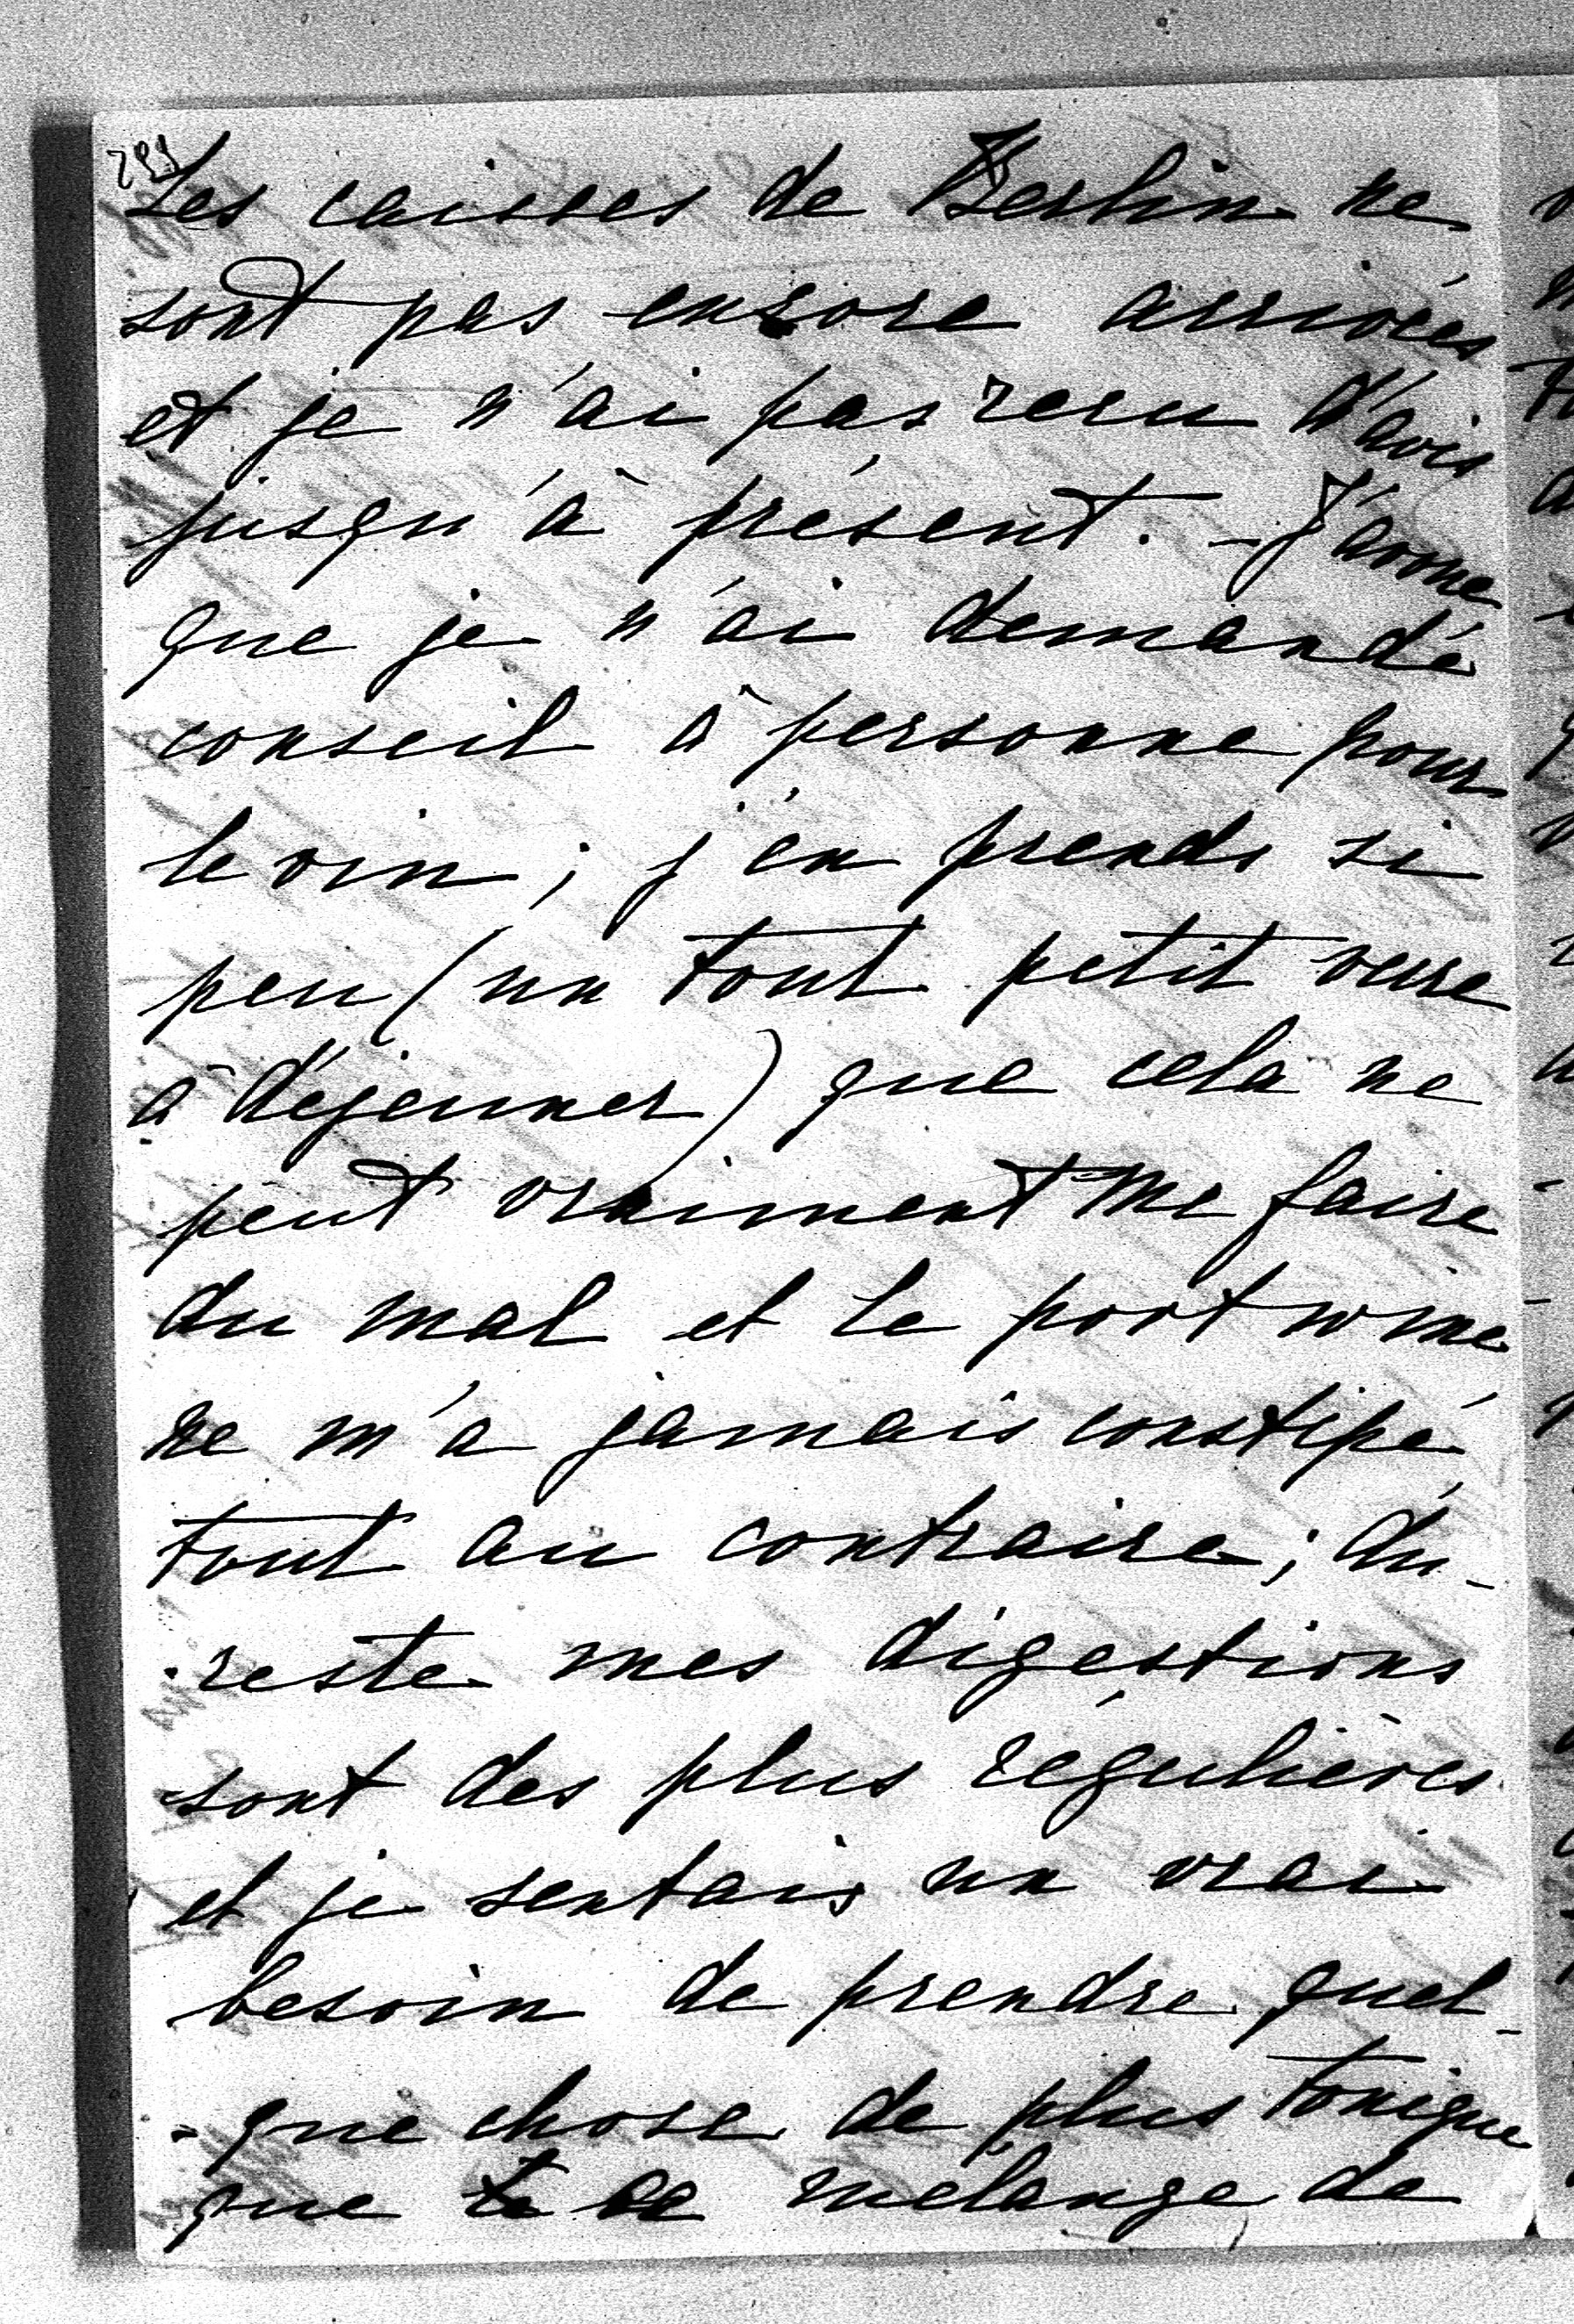 Les caisses de Berlin ne
sont pas encore arrivées
et je n'ai pas recu d'avis
jusqu'à présent. - J'avoue
que je n'ai demandé
conseil à personne pour
le vin ; j'en prends si
peu (un tout petit verre
à déjeuner) que cela ne
peut vraiment me faire
du mal et le port wine
ne m'a jamais constipé,
tout au contraire ; du-
reste mes digestions
sont des plus régulières
et je sentais un vrai
besoin de prendre quel-
-que chose de plus tonique
que ce mélange de